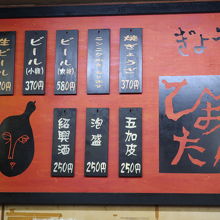 ぎょう
ひょうたん
焼ぎょうざ
370円
ビール
(大瓶)
580円
ビール
(小瓶)
370円
生ビール
五加皮
250円
泡盛
250円
紹興酒
250円